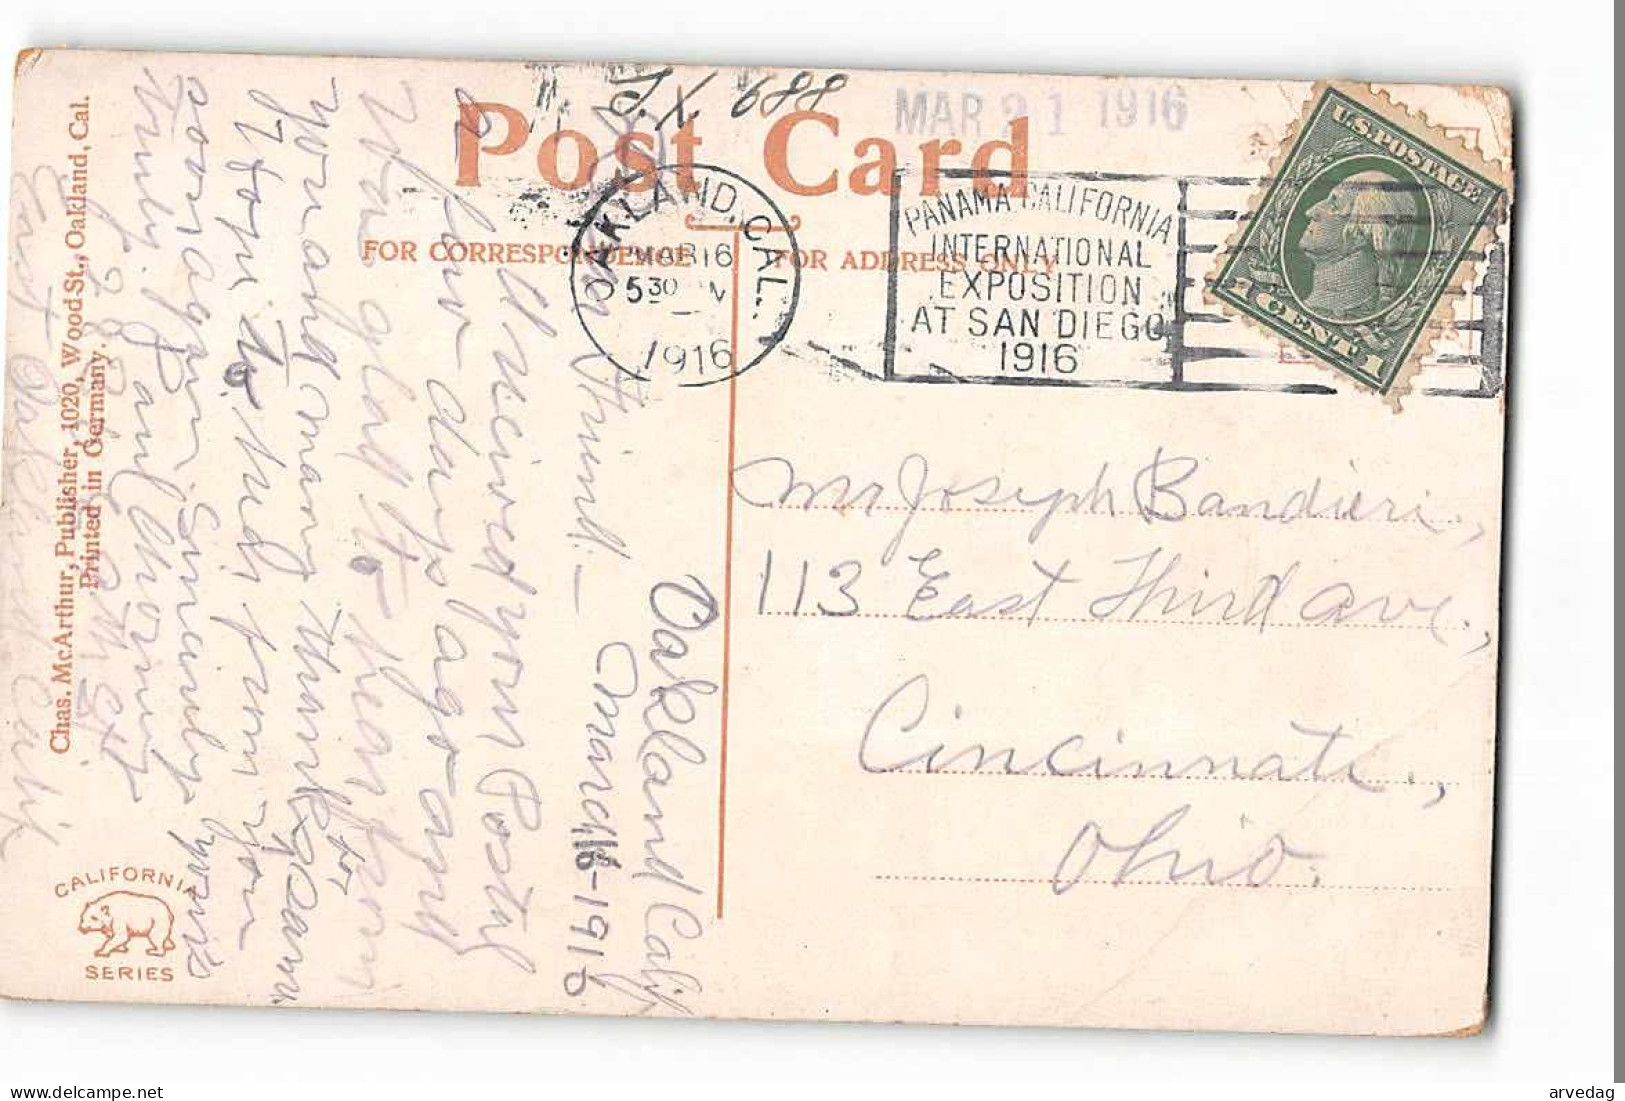 J.X. 688
MAR 21 1916
Post Card
FOR CORRESPONDENCE
FOR ADDRESS ONLY
OAKLAND, CAL.
MAR 16
5 30
1916
PANAMA CALIFORNIA
INTERNATIONAL
EXPOSITION
AT SAN DIEGO
1916
U.S. POSTAGE
1 CENT 1
Mr Joseph Bandieri,
113 East Third Ave.,
Cincinnati,
Ohio.
Oakland Calif
March 16-1916
Friend.—
Received your Postal
a few days ago and
Was glad to hear from
you and many thanks
I hope to hear from you
soon again Sincerely yours
Truly. Paul
East Oakland Calif
Chas. McArthur, Publisher, 1020, Wood St., Oakland, Cal.
Printed in Germany.
CALIFORNIA
SERIES
arvedag